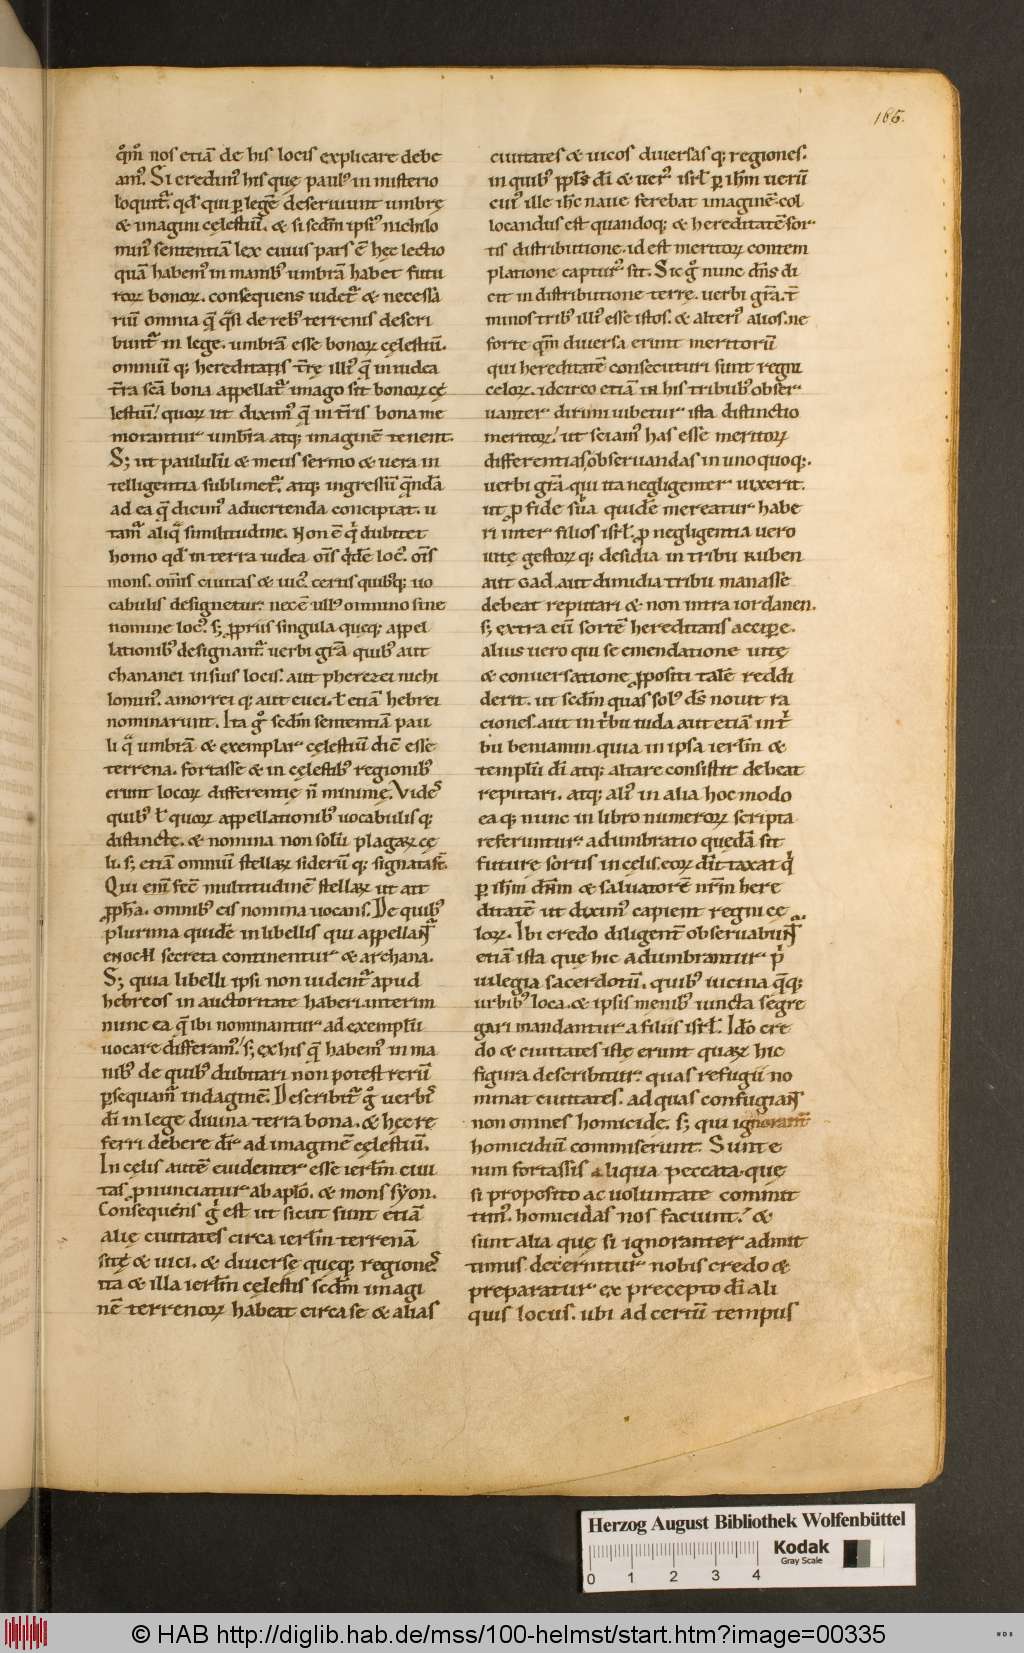 165.
q̊m̊ nos etiā de his locis explicare debe
am᷒. Si credim᷒ his quę paul᷒ in misterio
loquit᷑. qd̕ qui ꝑ legē deseruiunt umbrę
& imagini cęlestiū. & si scd̄m ipsi᷒ nichilo
min᷒ sententiā lex cuius pars ē hęc lectio
quā habem᷒ in manib᷒ umbrā habet futu
roꝝ bonoꝝ. consequens uidet᷑ & necessa
riū omnia q̨̄ q̄si de reb᷒ terrenis descri
bunt᷑ in lege. umbrā esse bonoꝝ cęlestiū.
omniū q; hereditatis t̄rę illi᷒ q̨̄ in iudea
t̄ra scā bona appellat᷑ imago sit bonoꝝ cę
lestiū! quoꝝ ut dixim᷒ q̨̄ in t̄ris bona me
morantur umbrā atq; imaginē tenent.
S; ut paululū & meus sermo & uera in
telligentia sublimet᷑. atq; ingressū q̄ndā
ad ea q̨̄ dicim᷒ aduertenda concipiat. u
tam᷑ aliq̄ similitudine. Non ē q̇ dubitet
homo qd̕ in terra iudea om̄s q̇dē loc᷒. om̄s
mons. om̄is ciuitas & uic᷒. certis quib᷒q; uo
cabulis designetur. nec ē ull᷒ omnino sine
nomine loc᷒. s; ꝓpriis singula quęq; appel
lationib᷒ designant᷑ uerbi gr̄a quib᷒ aut
chananei in suis locis. aut pherezei nichi
lomin᷒. amorrei q; aut euei. ł etiā hebrei
nominarunt. Ita g̊ scd̄m sententiā pau
li q̄ umbrā & exemplar cęlestiū dic̄ esse
terrena. fortasse & in cęlestib᷒ regionib᷒
erunt locoꝝ differentię ñ minimę. Vides
quib᷒ ł quoꝝ appellationib᷒ uocabulis q;
distinctę. & nomina non solū plagaꝝ cę
li. s; etiā omniū stellaꝝ siderū q; signatas̄t.
Qui eni fec̄ multitudinē stellaꝝ ut ait
ꝓpħa. omnib᷒ eis nomina uocans. De quib᷒
plurima quidē in libellis qui appellant᷑
enoch secreta continentur & archana.
S; quia libelli ipsi non uident᷑ apud
hebreos in auctoritate haberi. interim
nunc ea q̨̄ ibi nominantur ad exemplū
uocare differam᷒! s; ex his q̨̄ habem᷒ in ma
nib᷒ de quib᷒ dubitari non potest rerū
ꝑsequam᷑ indaginē. Describit᷑ g̊ uerbis
dī in lege diuina terra bona. & hęc re
ferri debere dr̄ ad imaginē cęlestiū.
In cęlis autē euidenter esse ierl̄m ciui
tas ꝓnunciatur ab apl̄o. & mons syon.
Consequens g̊ est ut sicut sunt etiā
alię ciuitates circa ierl̄m terrenā
sitę & uici. & diuersę quęq; regiones
ita & illa ierl̄m cęlestis scd̄m imagi
nē terrenoꝝ habeat circa se & alias
ciuitates & uicos diuersas q; regiones.
in quib᷒ ppl̄s dī & uer᷒ isrł ꝑ ih̄m uerū
cui᷒ ille ih̄c naue ferebat imaginē. col
locandus est quandoq; & hereditatē sor
tis distributione. id est meritoꝝ contem
platione captur᷒ sit. Sic g̊ nunc dn̄s di
cit in distributione terrę. uerbi gr̄a. t̄
minos trib᷒ illi᷒ esse istos. & alteri᷒ alios. ne
forte qm̄ diuersa erunt meritorū
qui hereditatē consecuturi sunt regni
celoꝝ. idcirco etiā in his tribub᷒ obser
uanter dirimi iubetur ista distinctio
meritoꝝ! ut sciam᷒ has esse meritoꝝ
differentias obseruandas in uno quoq;.
uerbi gr̄a. qui ita negligenter uixerit.
ut ꝓ fide sua quidē mereatur habe
ri inter filios isrł. ꝓ negligentia uero
uitę gestoꝝ q; desidia in tribu Ruben
aut Gad. aut dimidia tribu manasse
debeat reputari & non intra iordanen.
s; extra eū sortē hereditatis accipe.
alius uero qui se emendatione uitę
& conuersatione ꝓpositi talē reddi
derit. ut scd̄m quas sol᷒ ds̄ nouit ra
ciones. aut in tribu iuda aut etiā in tri
bu beniamin. quia in ipsa ierl̄m &
templū dī atq; altare consistit debeat
reputari. atq; ali᷒ in alia hoc modo
ea q; nunc in libro numeroꝝ scripta
referuntur. adumbratio quędā sit
futurę sortis in cęlis. eoꝝ dū taxat q̇
ꝑ ih̄m dn̄m & saluatorē nr̄m here
ditatē ut dixim᷒ capient regni cę
loꝝ. Ibi credo diligent̄ obseruabunt᷑
etiā ista quę hic adumbrantur p̄
uilegia sacerdotū. quib᷒ uicina q̄q;
urbib᷒ loca. & ipsis menib᷒ iuncta segre
gari mandantur a filiis isrł. Ido cre
do & ciuitates istę erunt quaꝝ hic
figura describitur. quas refugii no
minat ciuitates. ad quas confugiant
non omnes homicidę. s; qui ignorant᷑
homicidiū commiserunt. Sunt e
nim fortassis aliqua peccata. quę
si proposito ac uoluntate commit
tim᷒. homicidas nos faciunt! &
sunt alia quę si ignoranter admit
timus. decernitur nobis credo &
preparatur ex precepto dī ali
quis locus. ubi ad certū tempus
Herzog August Bibliothek Wolfenbüttel
Kodak
Gray Scale
0 1 2 3 4
© HAB http://diglib.hab.de/mss/100-helmst/start.htm?image=00335